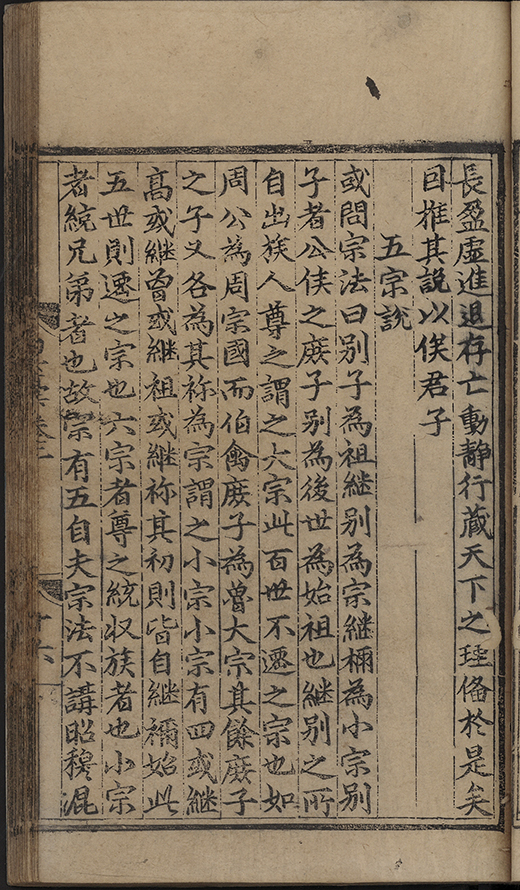 長盈虛進退存亡動靜行藏天下之理俻於是矣
因推其說以俟君子
五宗說
或問宗法曰別子為祖継別為宗継禰為小宗別
子者公侯之庻子别為後世為始祖也継别之所
自出族人尊之謂之大宗此百世不遷之宗也如
周公為周宗國而伯禽庻子為魯大宗其餘庻子
之子又各為其祢為宗謂之小宗小宗有四或継
髙或継曾或継祖或継祢其初則皆自継禰始此
五世則遷之宗也大宗者尊之統収族者也小宗
者統兄弟者也故宗有五自夫宗法不講昭穆混